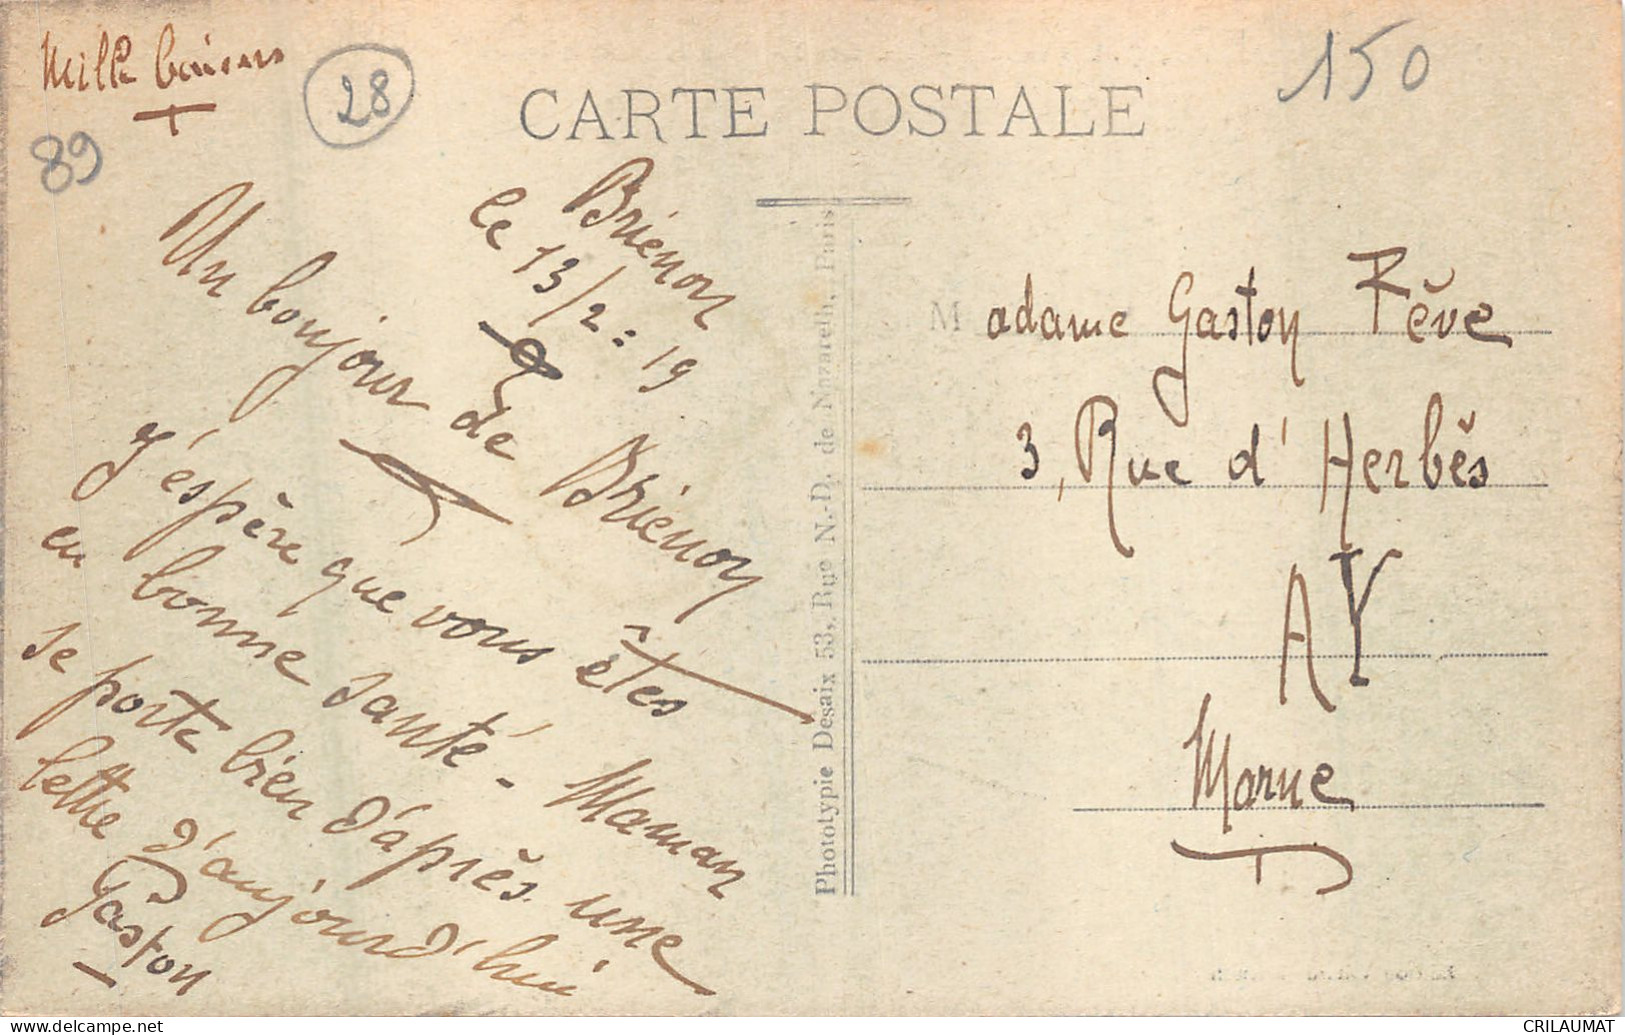 Mille baisers
28
89
150
CARTE POSTALE
Brienon
le 13/2:19
Un bonjour de Brienon
J'éspère que vous êtes
en bonne santé - Maman
se porte bien d'après une
lettre d'aujourd'hui
Gaston
Phototypie Desaix 53, Rue N.-D. de Nazareth, Paris
Madame Gaston Fève
3, Rue d'Herbès
AY
Marne
CRILAUMAT